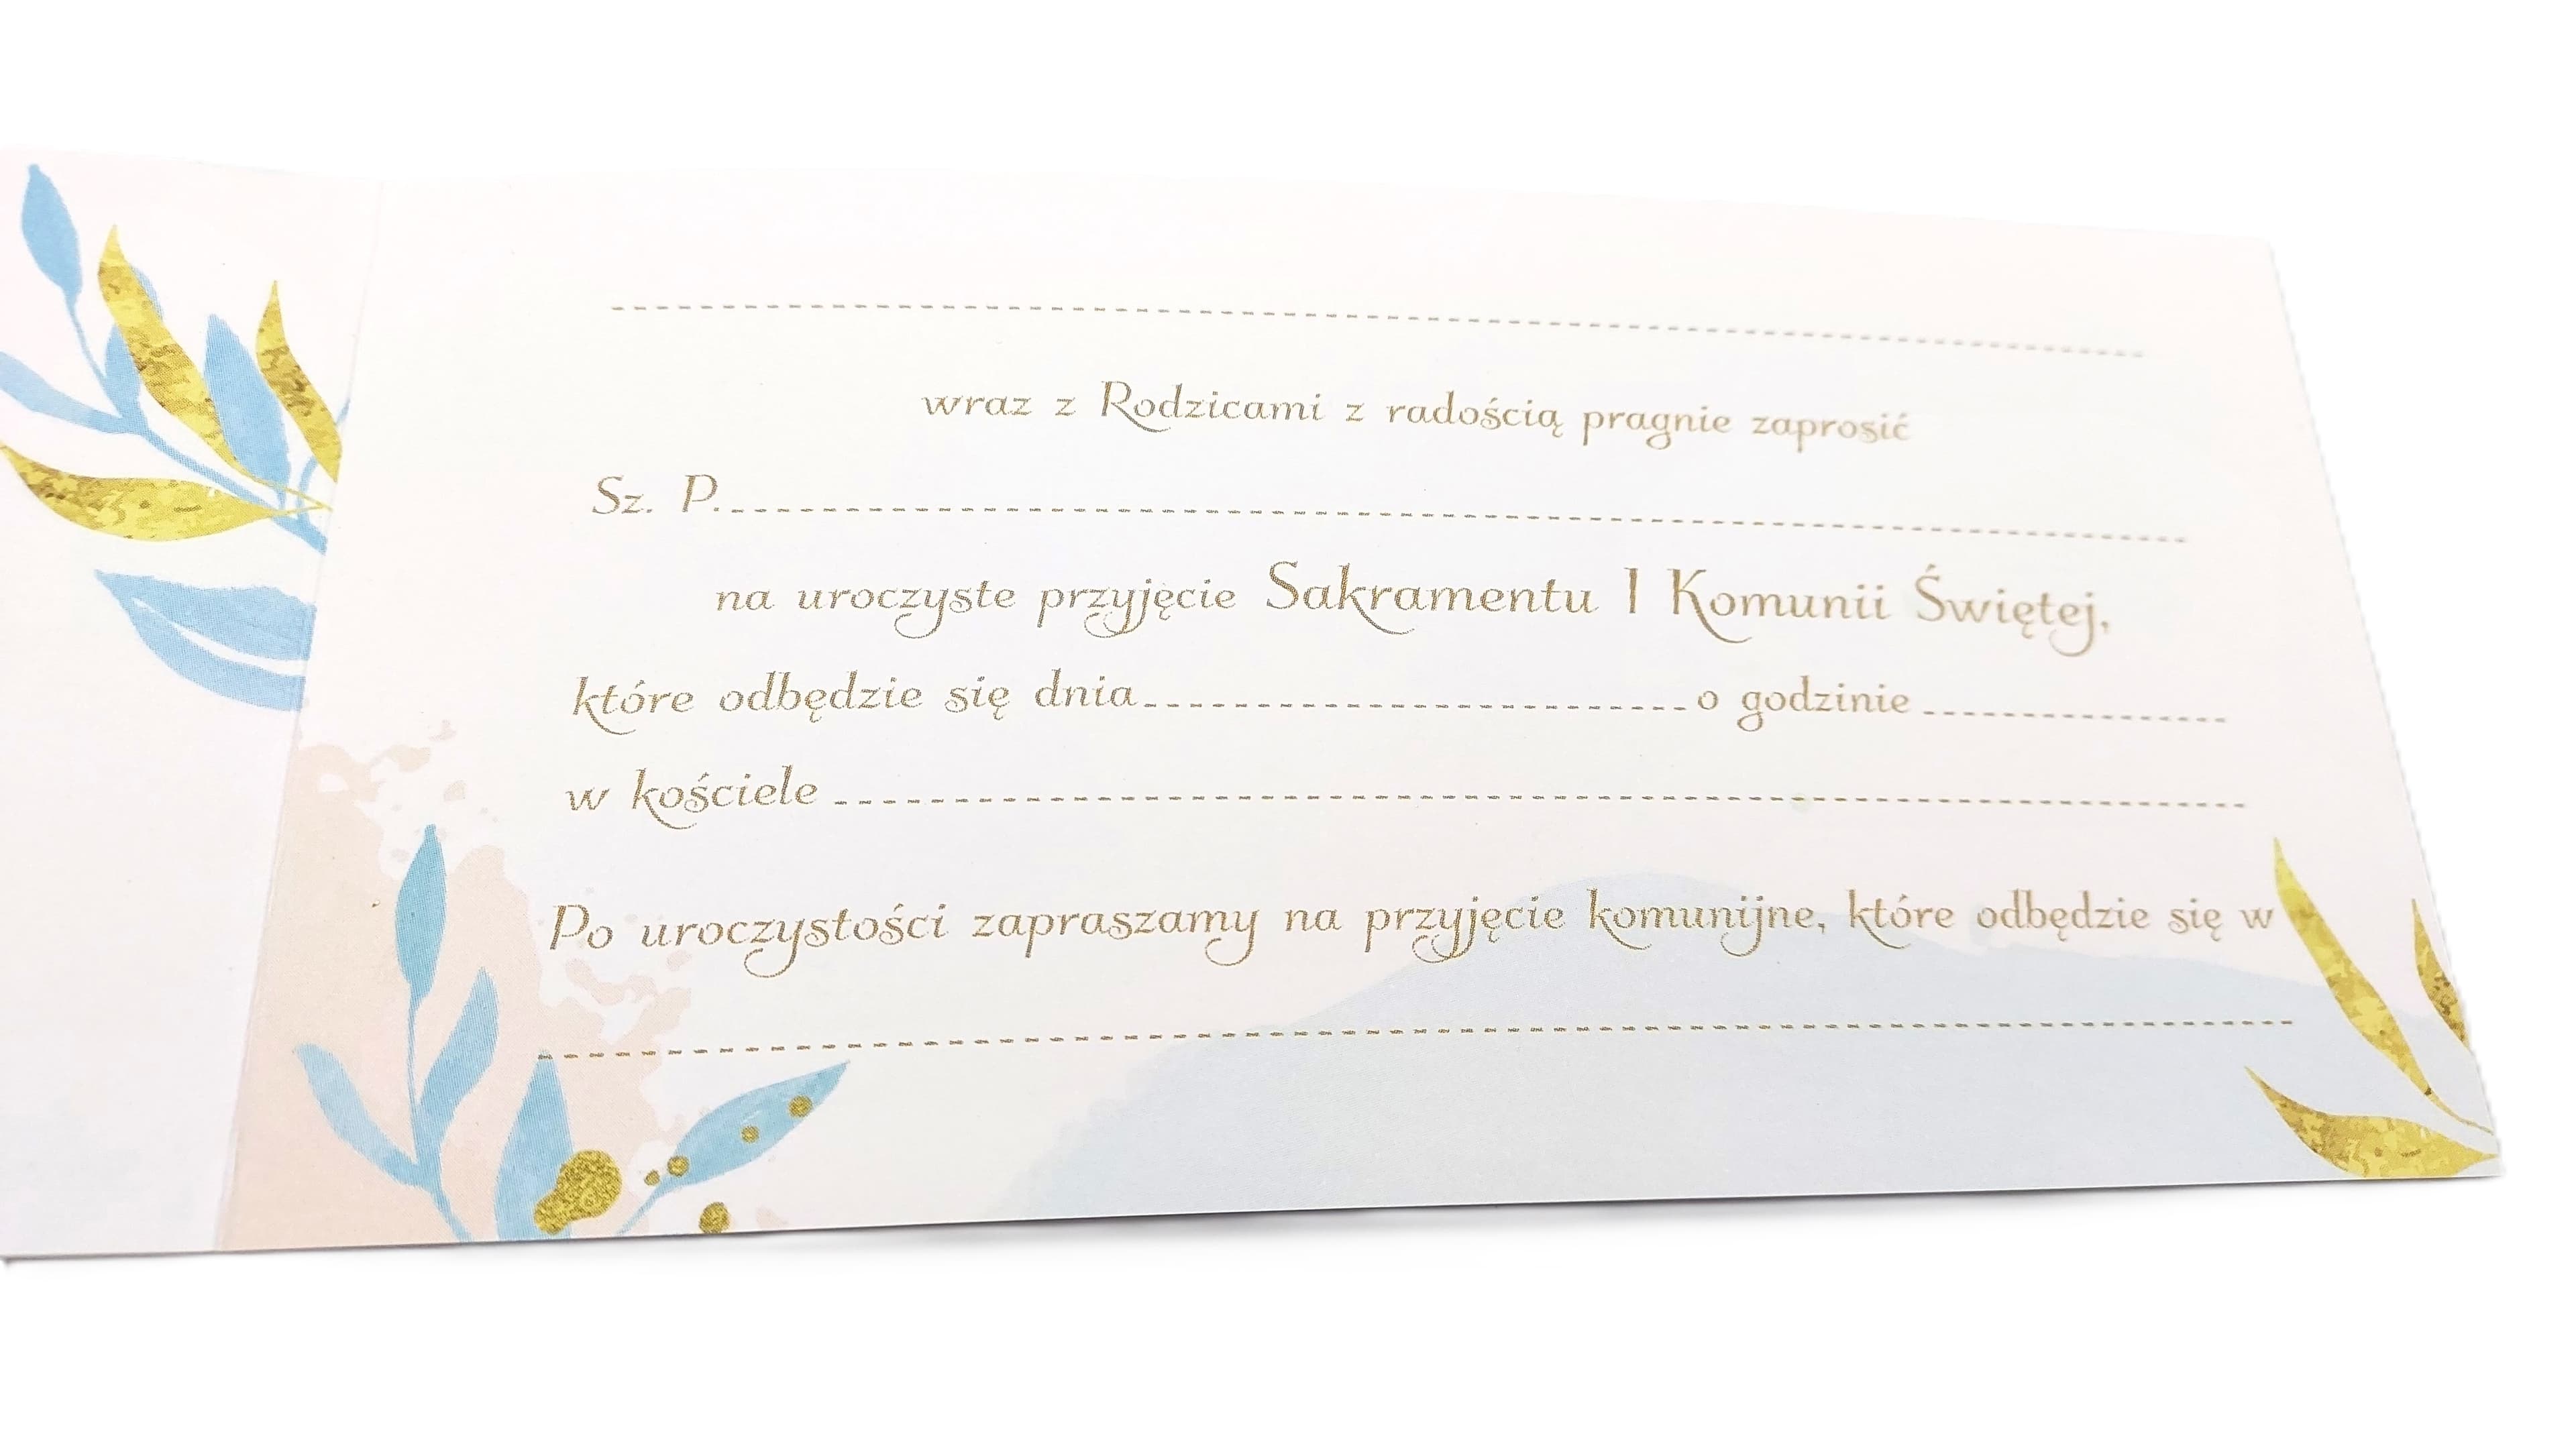 wraz z Rodzicami z radością pragnie zaprosić
Sz. P.
na uroczyste przyjęcie Sakramentu I Komunii Świętej,
które odbędzie się dnia o godzinie
w kościele
Po uroczystości zapraszamy na przyjęcie komunijne, które odbędzie się w